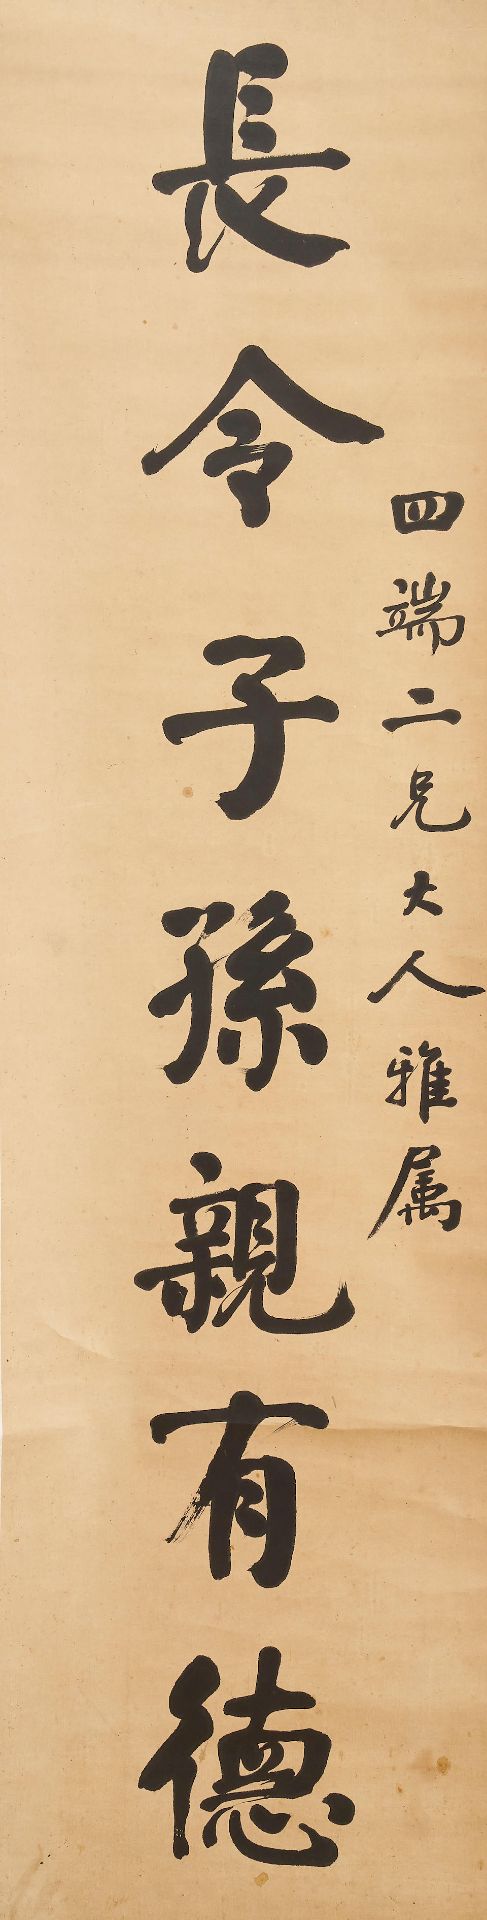 四端二兄大人雅属
長令子孫親有德